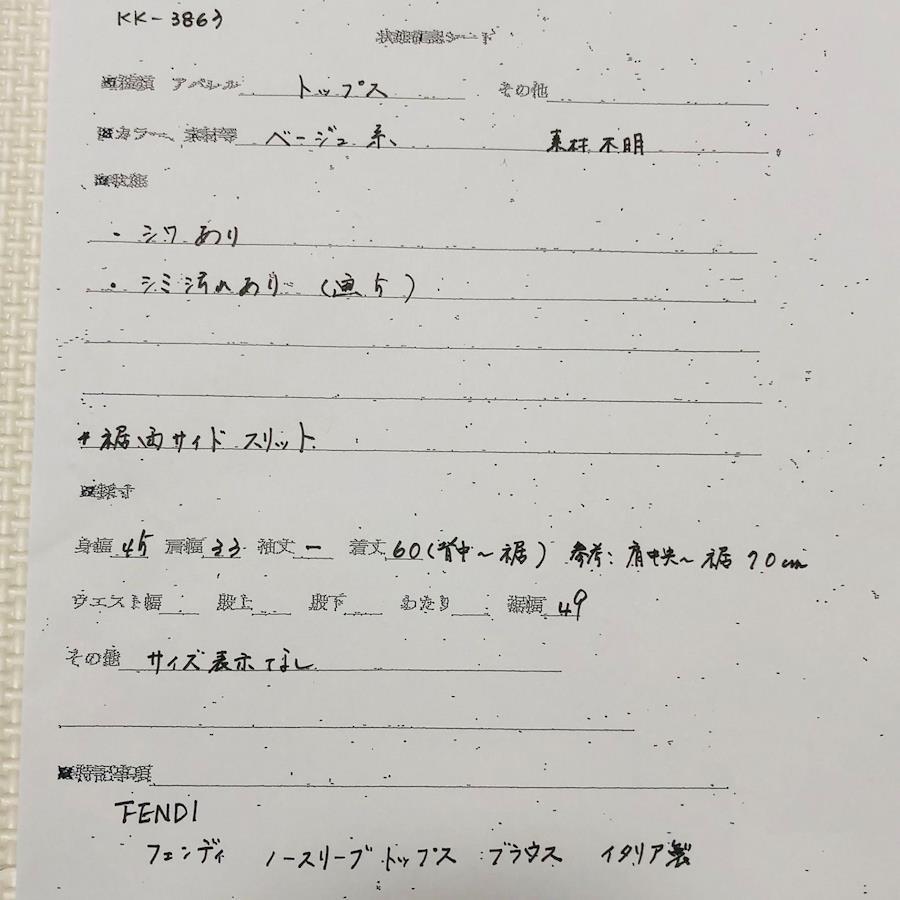 KK-3863
状態確認シート
■種類 アパレル トップス その他
■カラー、素材等 ベージュ系、 素材不明
■状態
・シワあり
・シミ汚れあり (画5)
*裾両サイドスリット
■採寸
身幅 45 肩幅 33 袖丈 - 着丈 60(背中〜裾) 参考:肩中央〜裾 70cm
ウエスト幅 股上 股下 わたり 裾幅 49
その他 サイズ表示なし
■特記事項
FENDI
フェンディ ノースリーブトップス ブラウス イタリア製